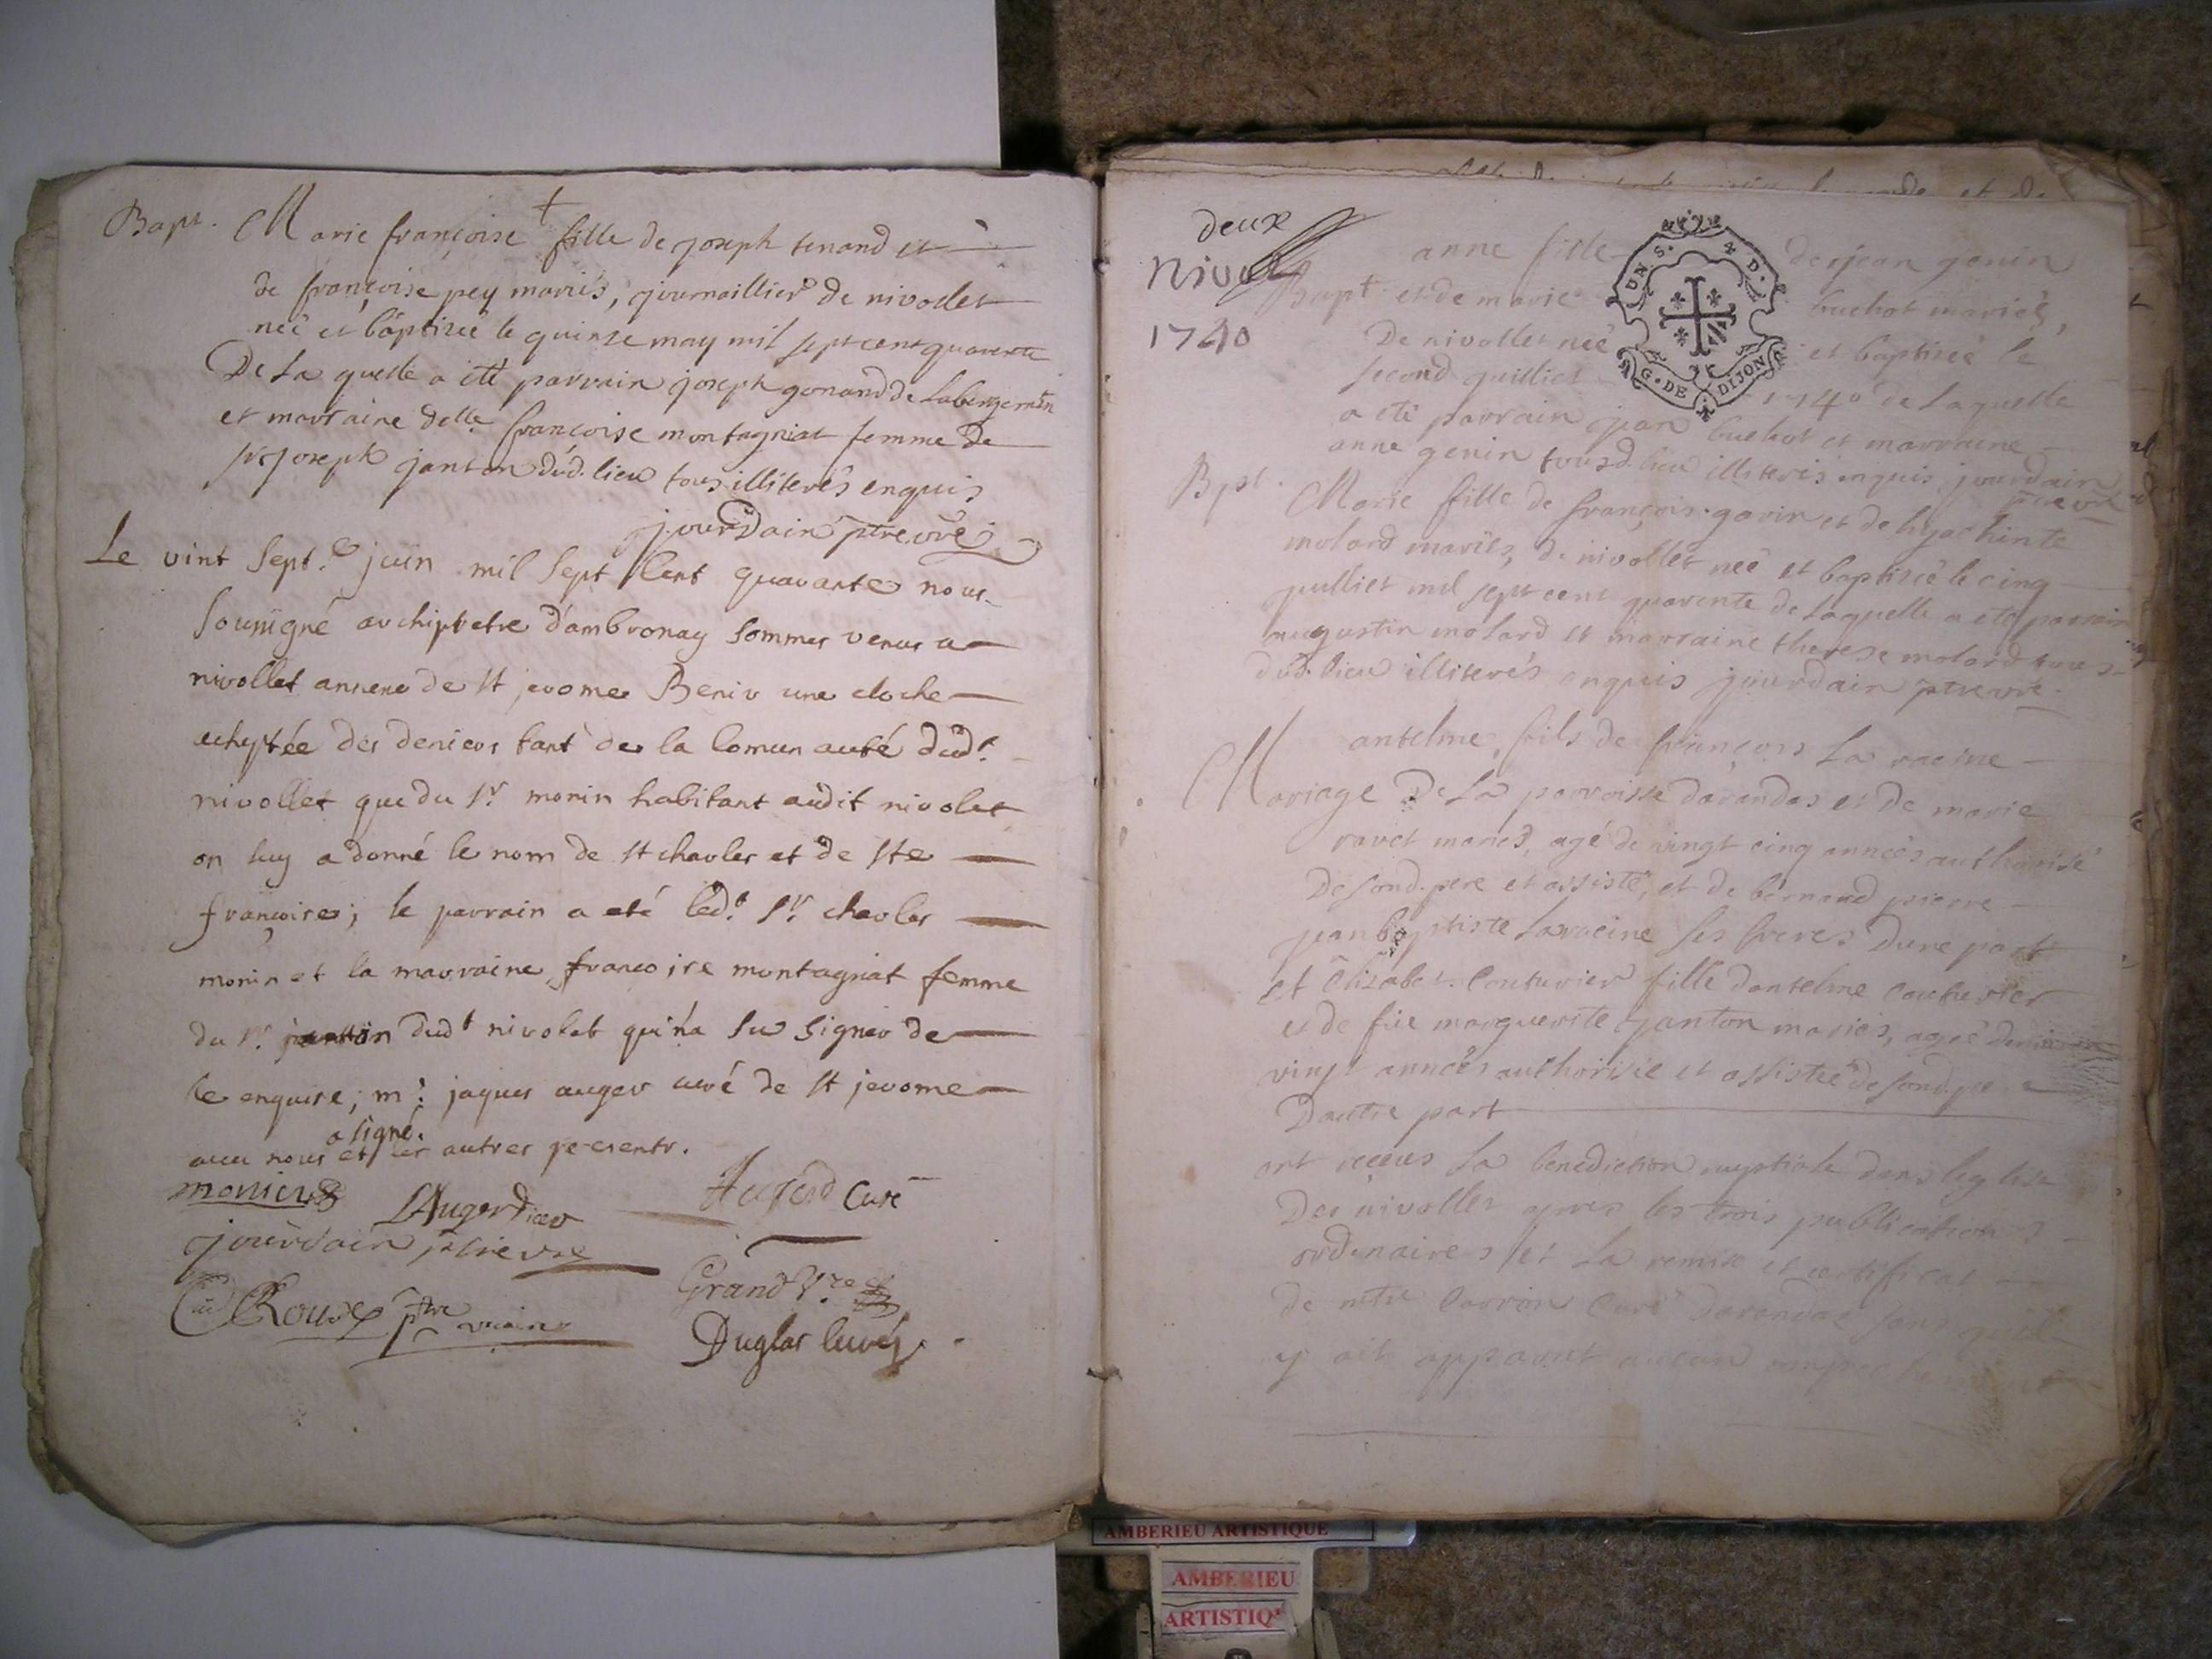 Bapt. Marie françoise + fille de joseph tenand et
de françoise pey mariés, journaillier de nivollet
née et baptisée le quinze may mil sept cent quarente
De La quelle a été parrain joseph gonand de
et marraine delle françoise montagniat femme de
sr joseph janton dud. lieu tous illiterés enquis
jourdain ptre vre
Le vint sept.e juin mil sept Cent quarante nous
soussigné archipretre d'ambronay sommes venus a
nivollet annexe de st jerome Benir une cloche
acheptée des deniers tant de la Comunauté dudt
nivollet que du sr monin habitant audit nivolet
on luy a donné le nom de st charles et de ste
françoise; le parrain a eté ledt sr charles
monin et la marraine françoise montagniat femme
du sr janton dudt nivolet qui n'a su signer de
ce enquise; mr jaques auger curé de st jerome
a signé.
avec nous et les autres presents.
LAuger
curé
jourdain ptre vre
Grand Vre
Roux ptre vicaire
Duglas curé
deux
Nivol
1740
UN S. 4 D.
G. DE DIJON
anne fille de jean genin
Bapt et de marie buchot mariés,
De nivollet née et baptisée le
second juilliet 1740 de Laquelle
a été parrain jean buchot et marraine
anne genin tous d. lieu illiterés enquis jourdain
ptre vre
Bpt. Marie fille de françois gavin et de hyachinte
molard mariés, de nivollet née et baptisée le cinq
juilliet mil sept cent quarente de Laquelle a été parrain
augustin molard et marraine therese molard tous
dud. lieu illiterés enquis jourdain ptre vre
antelme, fils de françois La racine
Mariage De La parroisse darandas et de marie
ravet mariés, agé de vingt cinq années authorisé
De sond. pere et assisté, et de bernard pierre
jean baptiste Laracine ses freres Dune part
et Elizabet Couturier fille dantelme couturier
et de füe marguerite janton mariés, agée
vingt années authorisée et assistée de sond. pere
Dautre part
ont receus La benediction nuptiale dans leglise
De nivollet apres les trois publications
ordinaires et La remise et certificat
de mtre Carrion Curé darandas sans quil
y ait apparut aucun
AMBERIEU ARTISTIQUE
AMBERIEU
ARTISTIQ